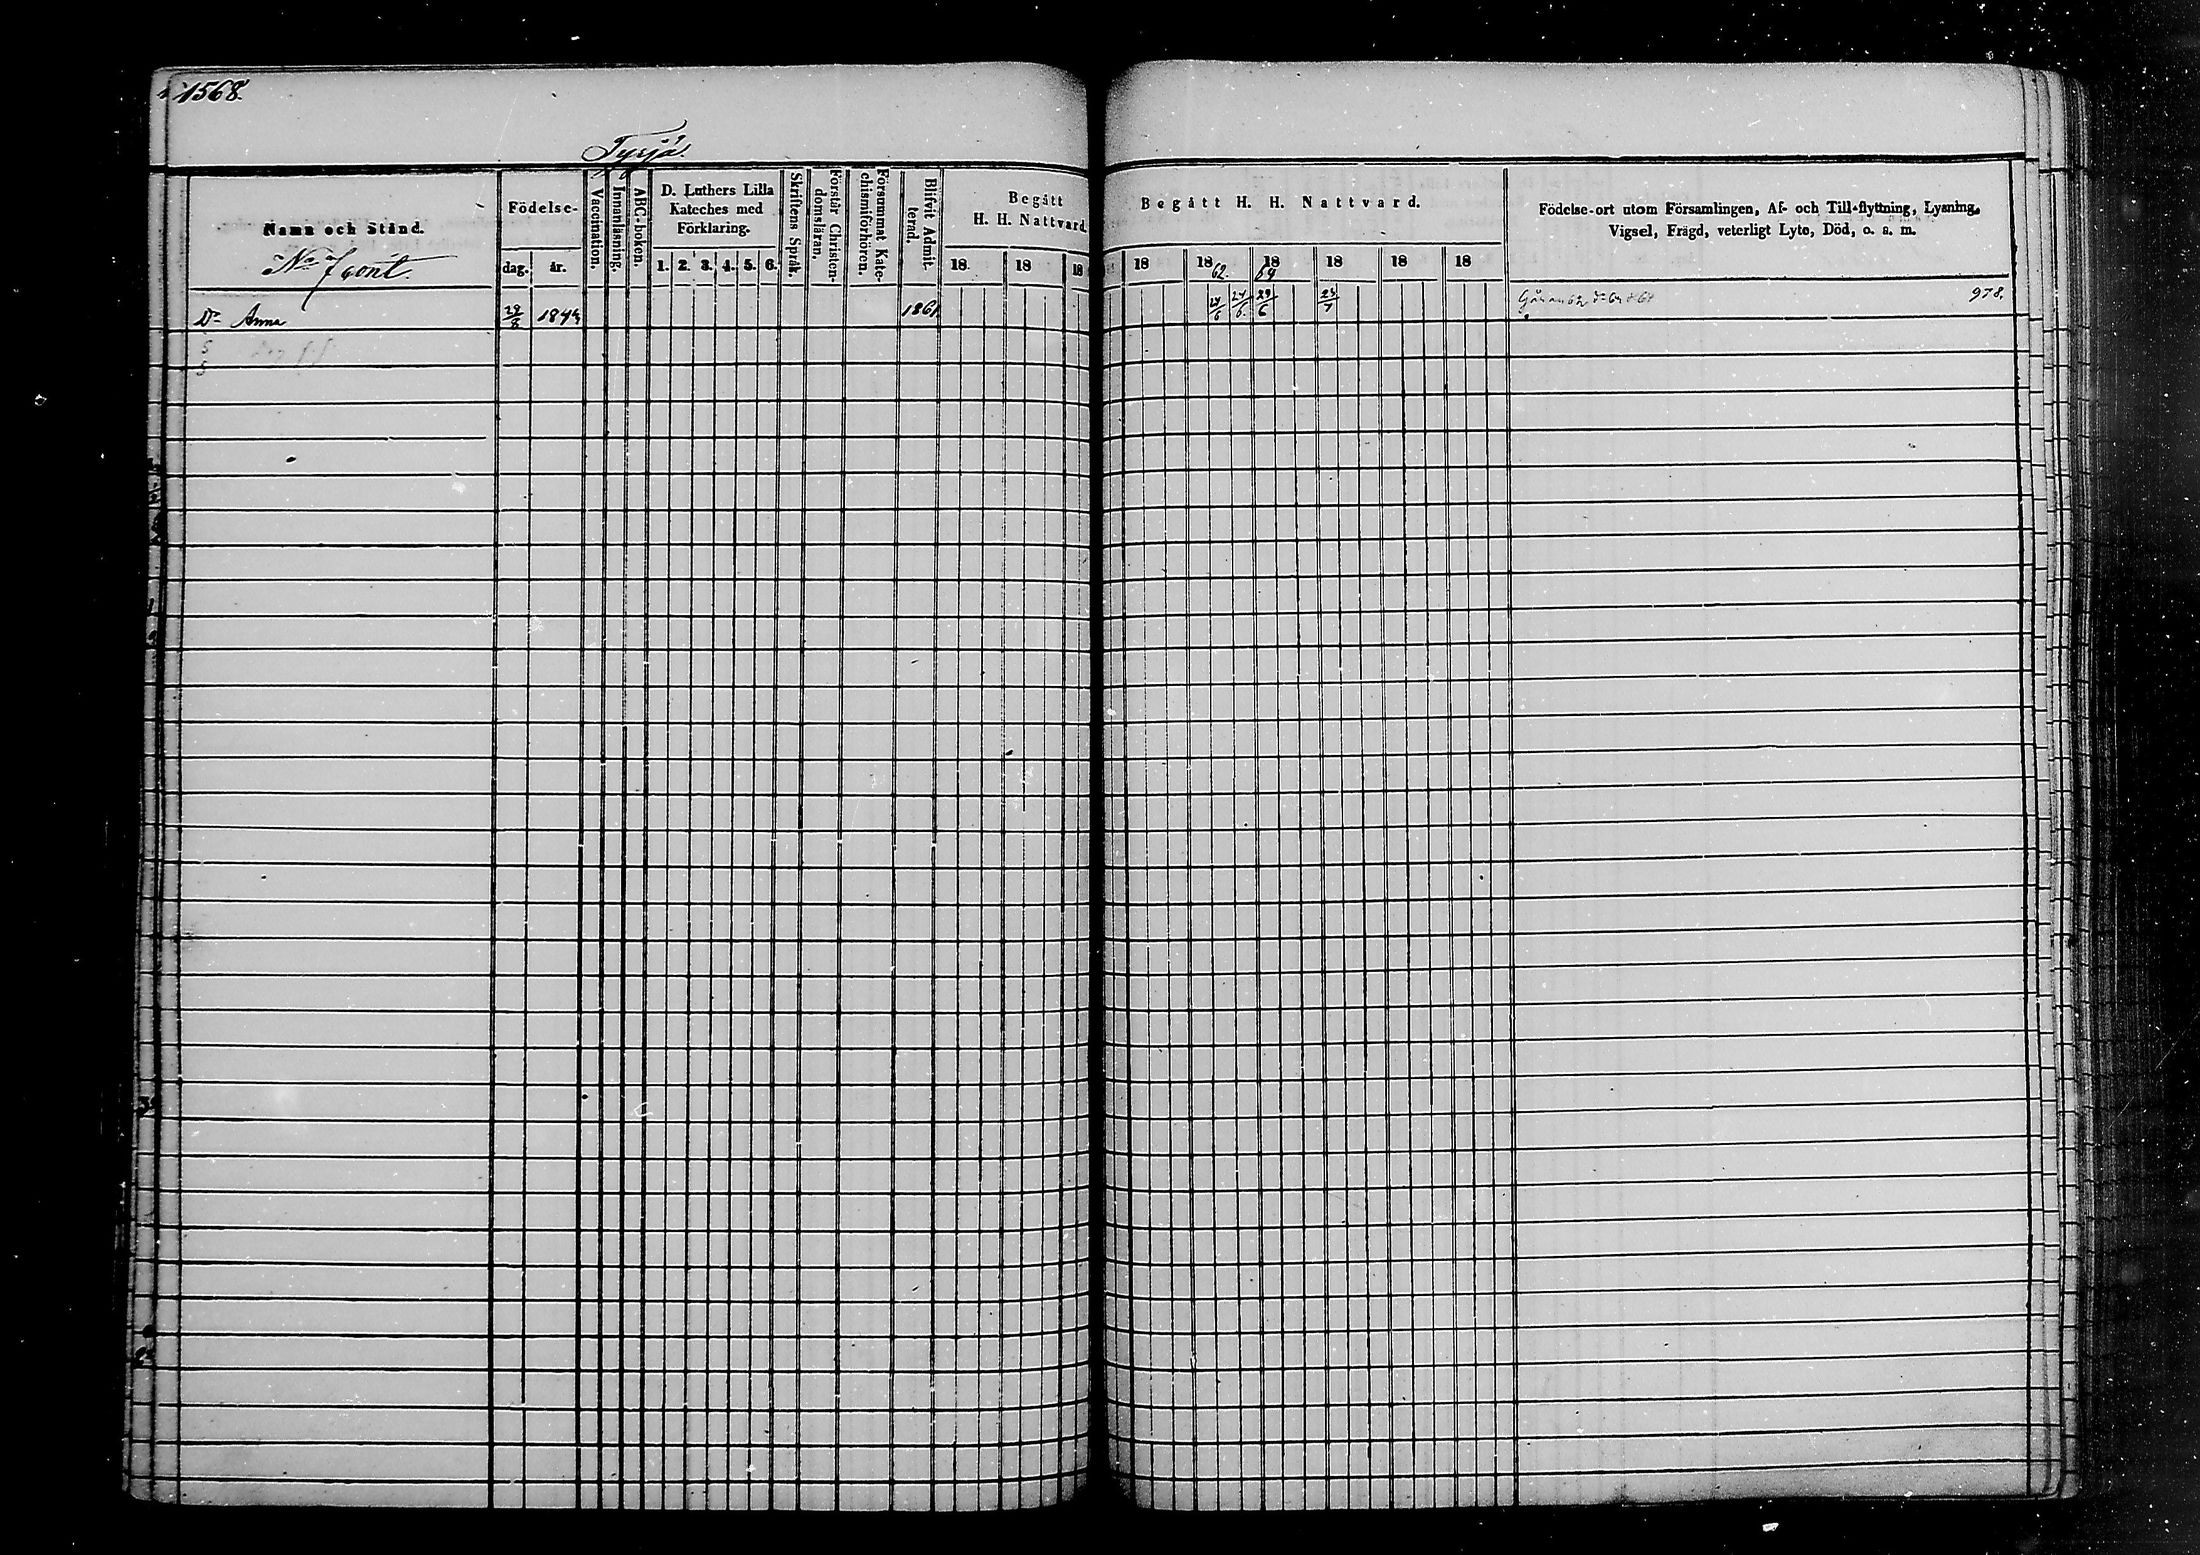 1568.
Tysjö.
Namn och Stånd.
No 7 cont.
Födelse-
dag.
år.
Vaccination.
Innanläsning.
ABC-boken.
D. Luthers Lilla
Kateches med
Förklaring.
1. 2. 3. 4. 5. 6.
Skriftens Språk.
Förstår Christen-
domsläran.
Försummat Kate-
chismiförhören.
Blifvit Admit-
terad.
Begått
H. H. Nattvard.
18 18 18
Begått H. H. Nattvard.
18 1862. 1864 18 18 18
Födelse-ort utom Församlingen, Af- och Till-flyttning, Lysning,
Vigsel, Frägd, veterligt Lyte, Död, o. s. m.
Dr Anna 29/8 1861 24/6 24/6 29/6 23/7 978.